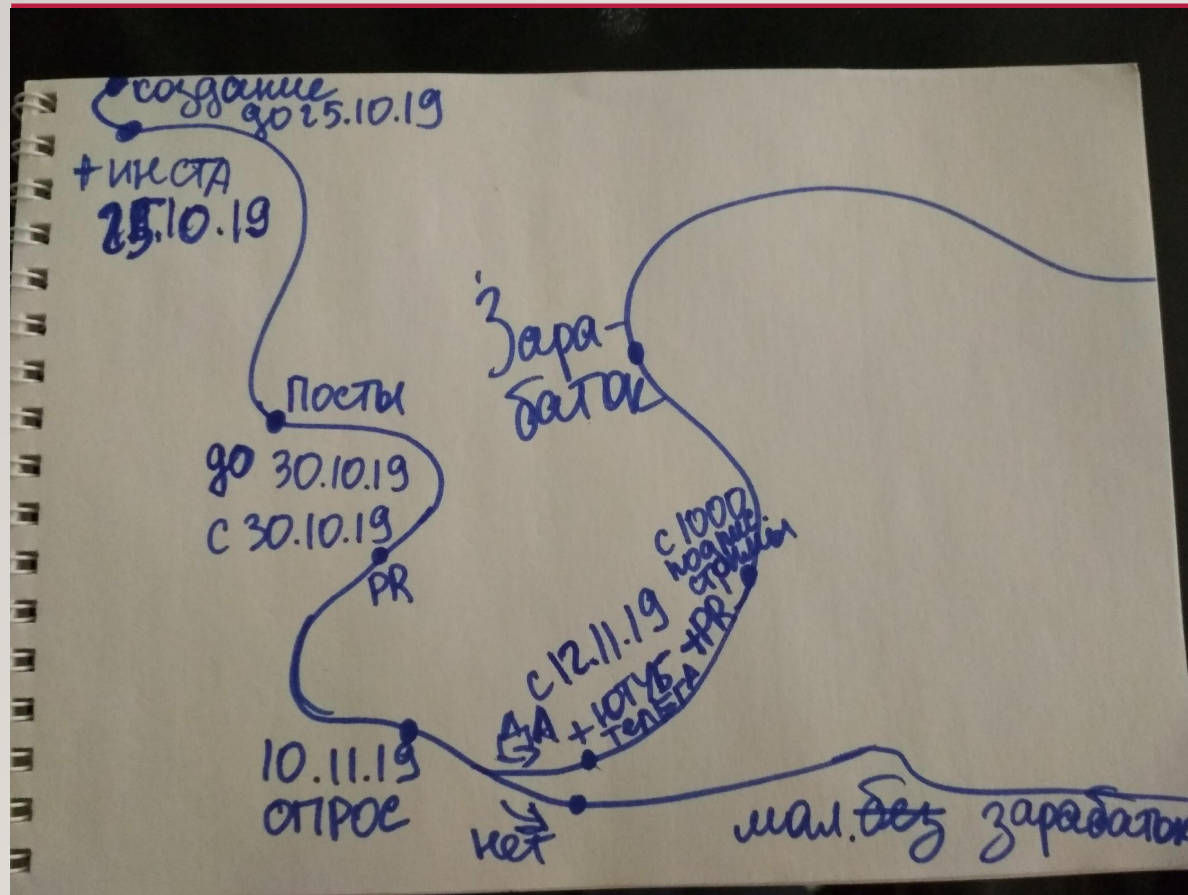 создание
до 25.10.19
+ ИНСТА
25.10.19
Посты
до 30.10.19
с 30.10.19
PR
10.11.19
ОПРОС
ДА
нет
с 12.11.19
+ ЮТУБ +PR
ТЕЛЕГА
с 1000
подпис.
стримы
Зара-
баток
мал. без заработок